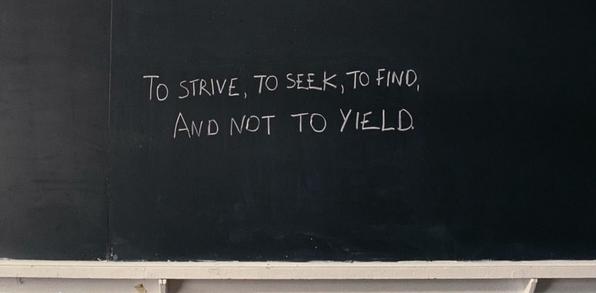 TO STRIVE, TO SEEK, TO FIND,
AND NOT TO YIELD.